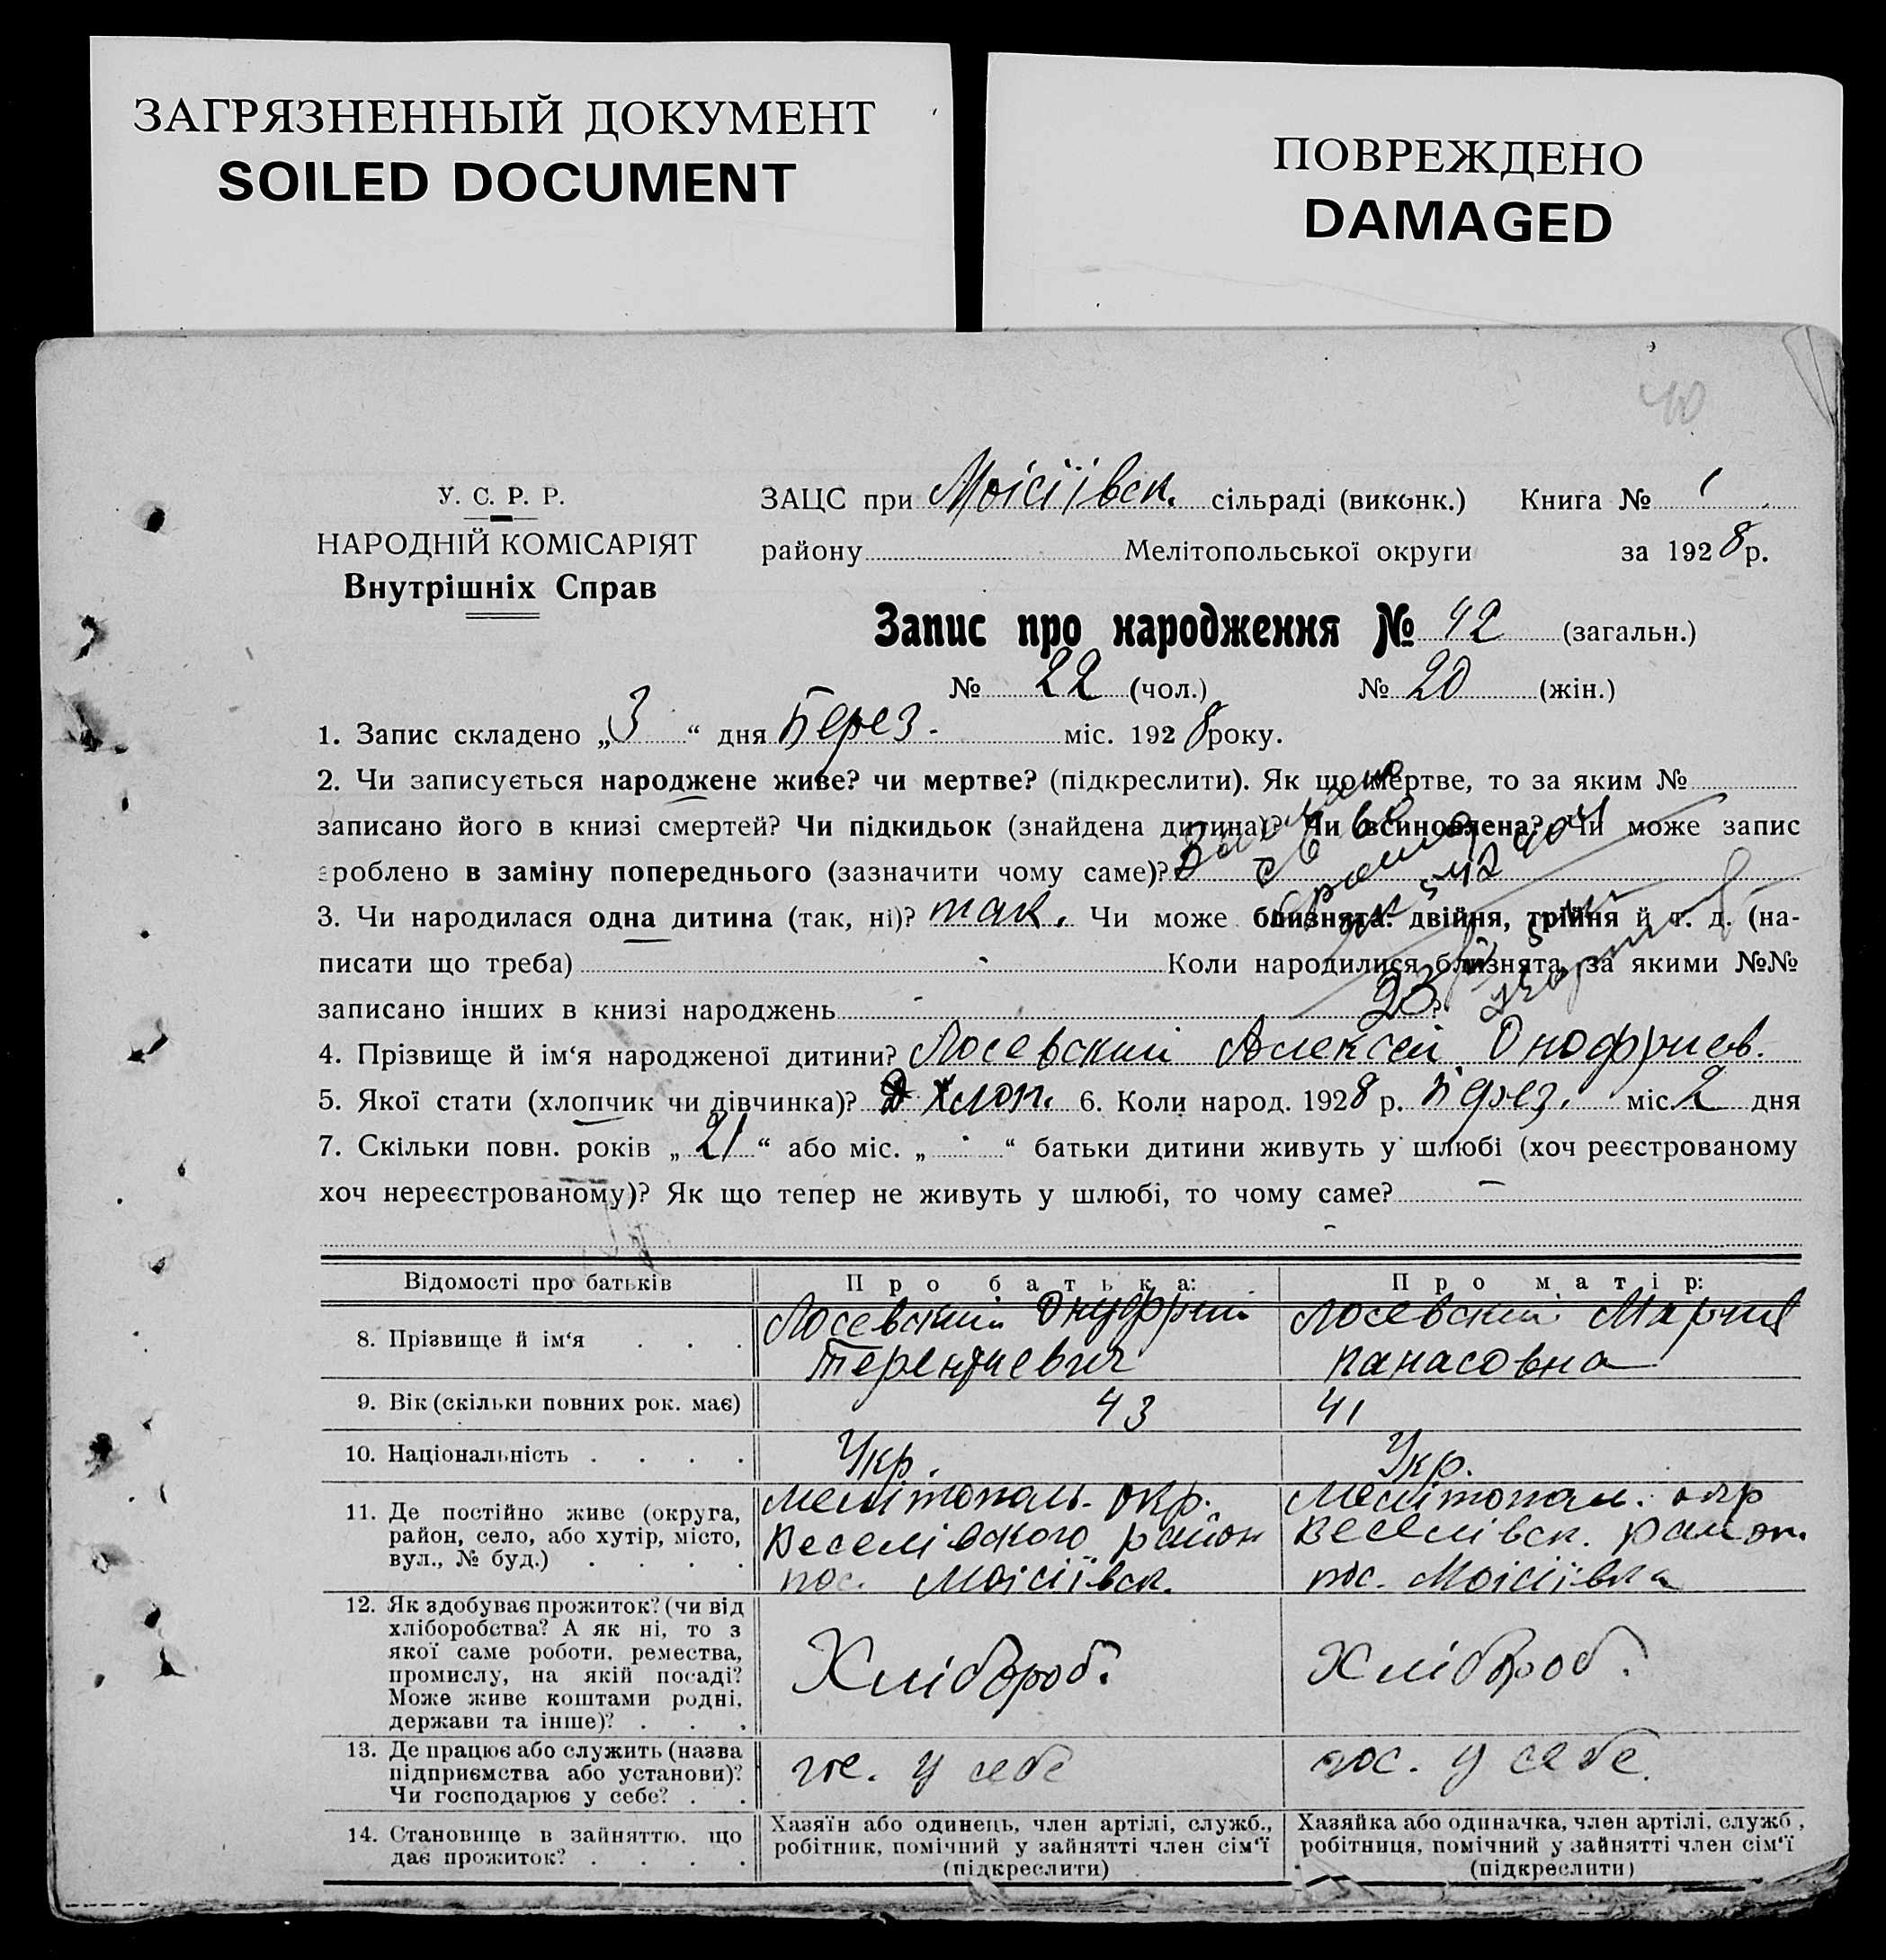 ЗАГРЯЗНЕННЫЙ ДОКУМЕНТ
SOILED DOCUMENT
ПОВРЕЖДЕНО
DAMAGED
40
У. С. Р. Р.
НАРОДНІЙ КОМІСАРІЯТ
Внутрішніх Справ
ЗАЦС при Моісіївск. сільраді (виконк.) Книга № 1
району Мелітопольської округи за 1928 р.
Запис про народження № 42 (загальн.)
№ 22 (чол.) № 20 (жін.)
1. Запис складено „3“ дня Берез. міс. 1928 року.
2. Чи записується народжене живе? чи мертве? (підкреслити). Як що мертве, то за яким №
записано його в книзі смертей? Чи підкидьок (знайдена дитина)? Чи всиновлена? Чи може запис
зроблено в заміну попереднього (зазначити чому саме)?
3. Чи народилася одна дитина (так, ні)? так. Чи може близнята: двійня, трійня й т. д. (на-
писати що треба) Коли народилися близнята, за якими №№
записано інших в книзі народжень
4. Прізвище й ім‘я народженої дитини? Лосевский Алексей Онофриев.
5. Якої стати (хлопчик чи дівчинка)? Хлоп. 6. Коли народ. 1928 р. Берез. міс. 2 дня
7. Скільки повн. років „21“ або міс. „-“ батьки дитини живуть у шлюбі (хоч реєстрованому
хоч нереєстрованому)? Як що тепер не живуть у шлюбі, то чому саме? —
Відомості про батьків Про батька: Про матір:
8. Прізвище й ім‘я . . . Лосевский Онуфрий Терентиевич Лосевский Мария Панасовна
9. Вік (скільки повних рок. має) 43 41
10. Національність . . . . Укр. Укр.
11. Де постійно живе (округа, район, село, або хутір, місто, вул., № буд.) . . . . Мелітополь. окр. Веселівского район пос. Моісіївск. Мелітопол. окр Веселівск. район. пос. Моісіївка
12. Як здобуває прожиток? (чи від хліборобства? А як ні, то з якої саме роботи, ремества, промислу, на якій посаді? Може живе коштами родні, держави та інше)? . . . Хлібороб. Хлібороб.
13. Де працює або служить (назва підприємства або установи)? Чи господарює у себе? . . гос. у себе гос. у себе.
14. Становище в зайняттю, що дає прожиток? . . . . Хазяїн або одинець, член артілі, служб., робітник, помічний у зайнятті член сім‘ї (підкреслити) Хазяйка або одиначка, член артілі, служб., робітниця, помічний у зайнятті член сім‘ї (підкреслити)